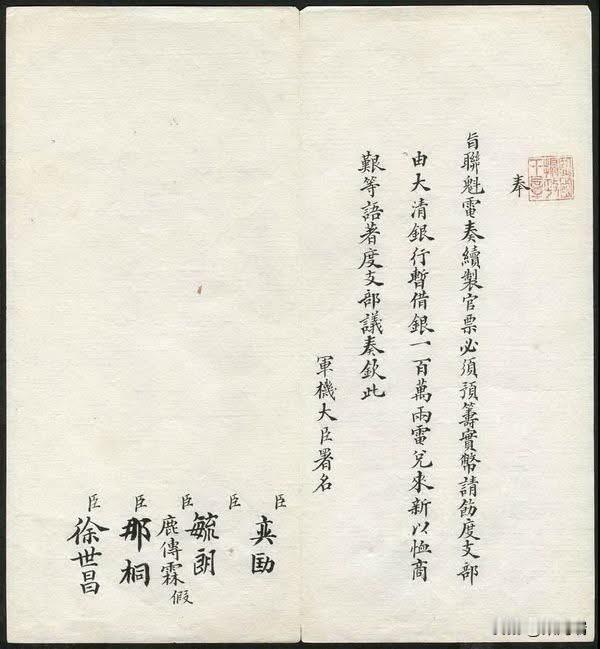 奉
旨聯魁電奏續製官票必須預籌實幣請飭度支部
由大清銀行暫借銀一百萬兩電兌來新以恤商
艱等語著度支部議奏欽此
軍機大臣署名
臣奕劻
臣毓朗
臣鹿傳霖假
臣那桐
臣徐世昌